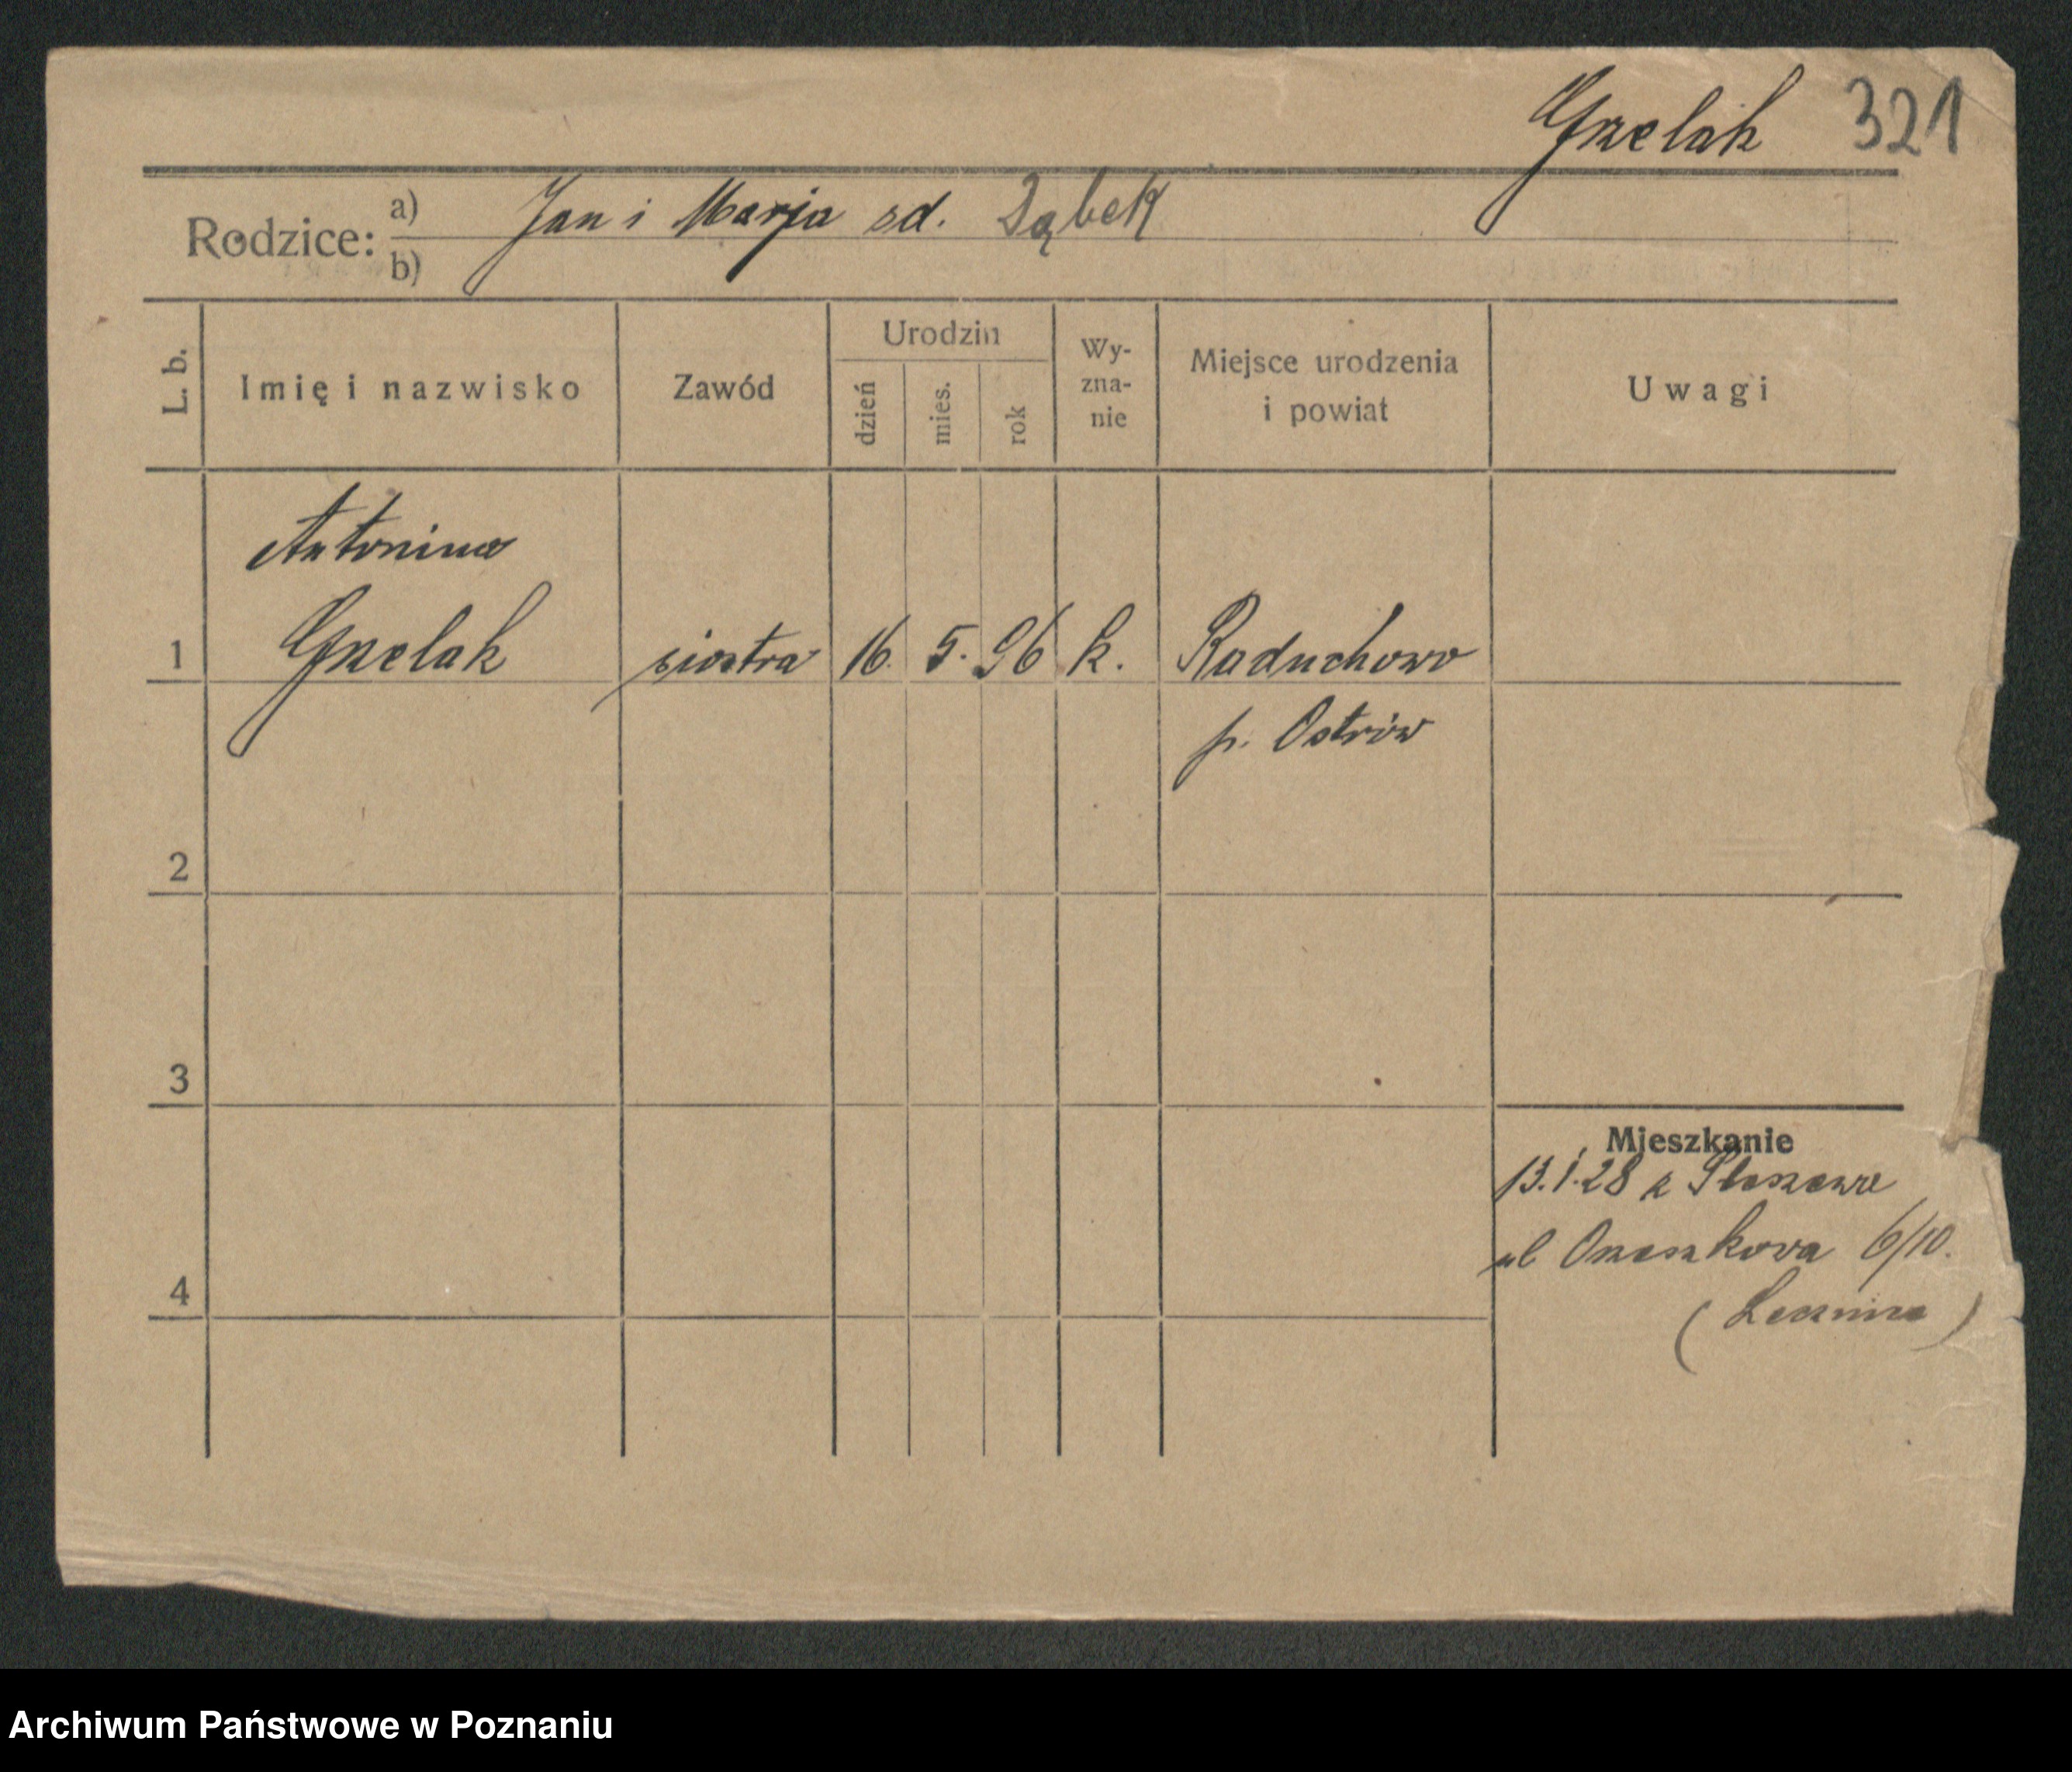 Grzelak 321
Rodzice: a) Jan i Marja zd. Dąbek
b)
L. b.
Imię i nazwisko
Zawód
Urodzin
dzień
mies.
rok
Wy-
zna-
nie
Miejsce urodzenia
i powiat
Uwagi
Antonina
1 Grzelak siostra 16. 5. 96 k. Raduchowo
p. Ostrów
2
3
Mieszkanie
13.1.28 z Pleszewa
ul Orzeszkowa 6/10.
4
(Lecznica)
Archiwum Państwowe w Poznaniu